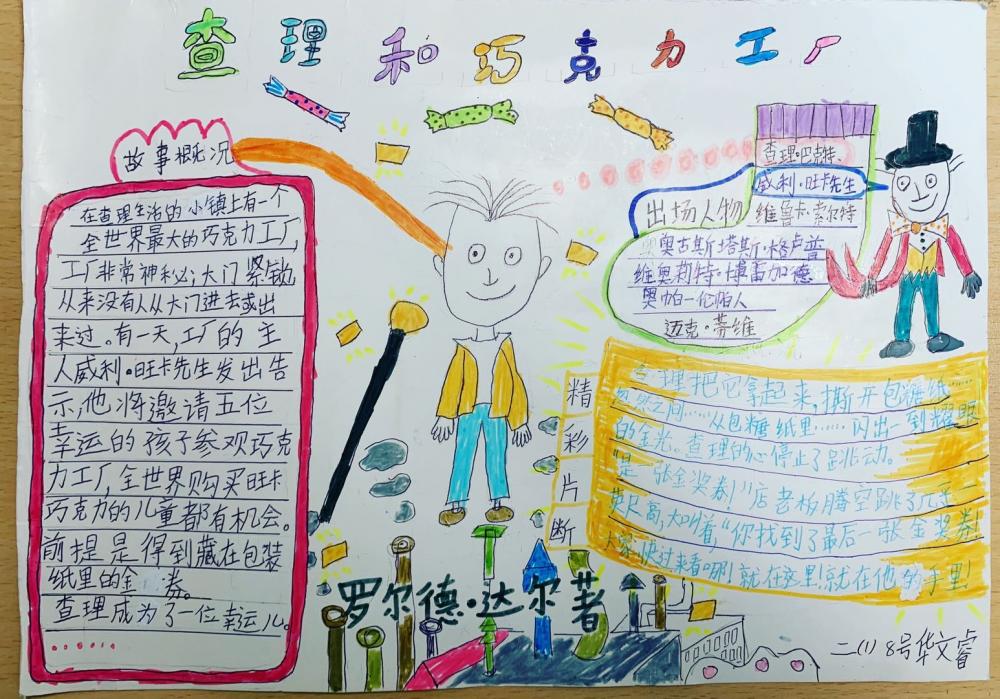 查理和巧克力工厂
故事概况
在查理生活的小镇上有一个
全世界最大的巧克力工厂,
工厂非常神秘;大门紧锁,
从来没有人从大门进去或出
来过。有一天,工厂的主
人威利·旺卡先生发出告
示,他将邀请五位
幸运的孩子参观巧克
力工厂,全世界购买旺卡
巧克力的儿童都有机会。
前提是得到藏在包装
纸里的金 券。
查理成为了一位幸运儿。
出场人物
查理·巴克特、
威利·旺卡先生
维鲁卡·索尔特
奥古斯塔斯·格卢普
维奥莉特·博雷加德
奥帕一伦帕人
迈克·蒂维
精彩片断
查理把它拿起来,撕开包糖纸……
忽然之间……从包糖纸里……闪出一到耀眼
的金光。查理的心停止了跳动。
"是一张金奖券!"店老板腾空跳了几
英尺高,大叫着,"你找到了最后一张金奖券!
大家快过来看哪!就在这里!就在他的手里!
罗尔德·达尔著
二(1) 8号华文睿